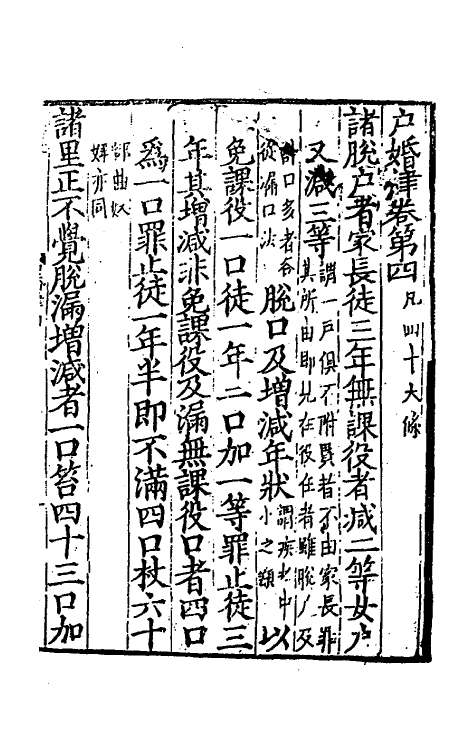 户婚律卷第四 凡四十六條
諸脫户者家長徒三年無課役者减二等女户
又减三等 謂一户俱不附貫若不由家長罪其所由即見在役任者雖脫户及
計口多者各從漏口法 脫口及增减年狀 謂疾老中小之類 以
免課役一口徒一年二口加一等罪止徒三
年其增减非免課役及漏無課役口者四口
爲一口罪止徒一年半即不滿四口杖六十
部曲奴婢亦同
諸里正不覺脫漏增减者一口笞四十三口加